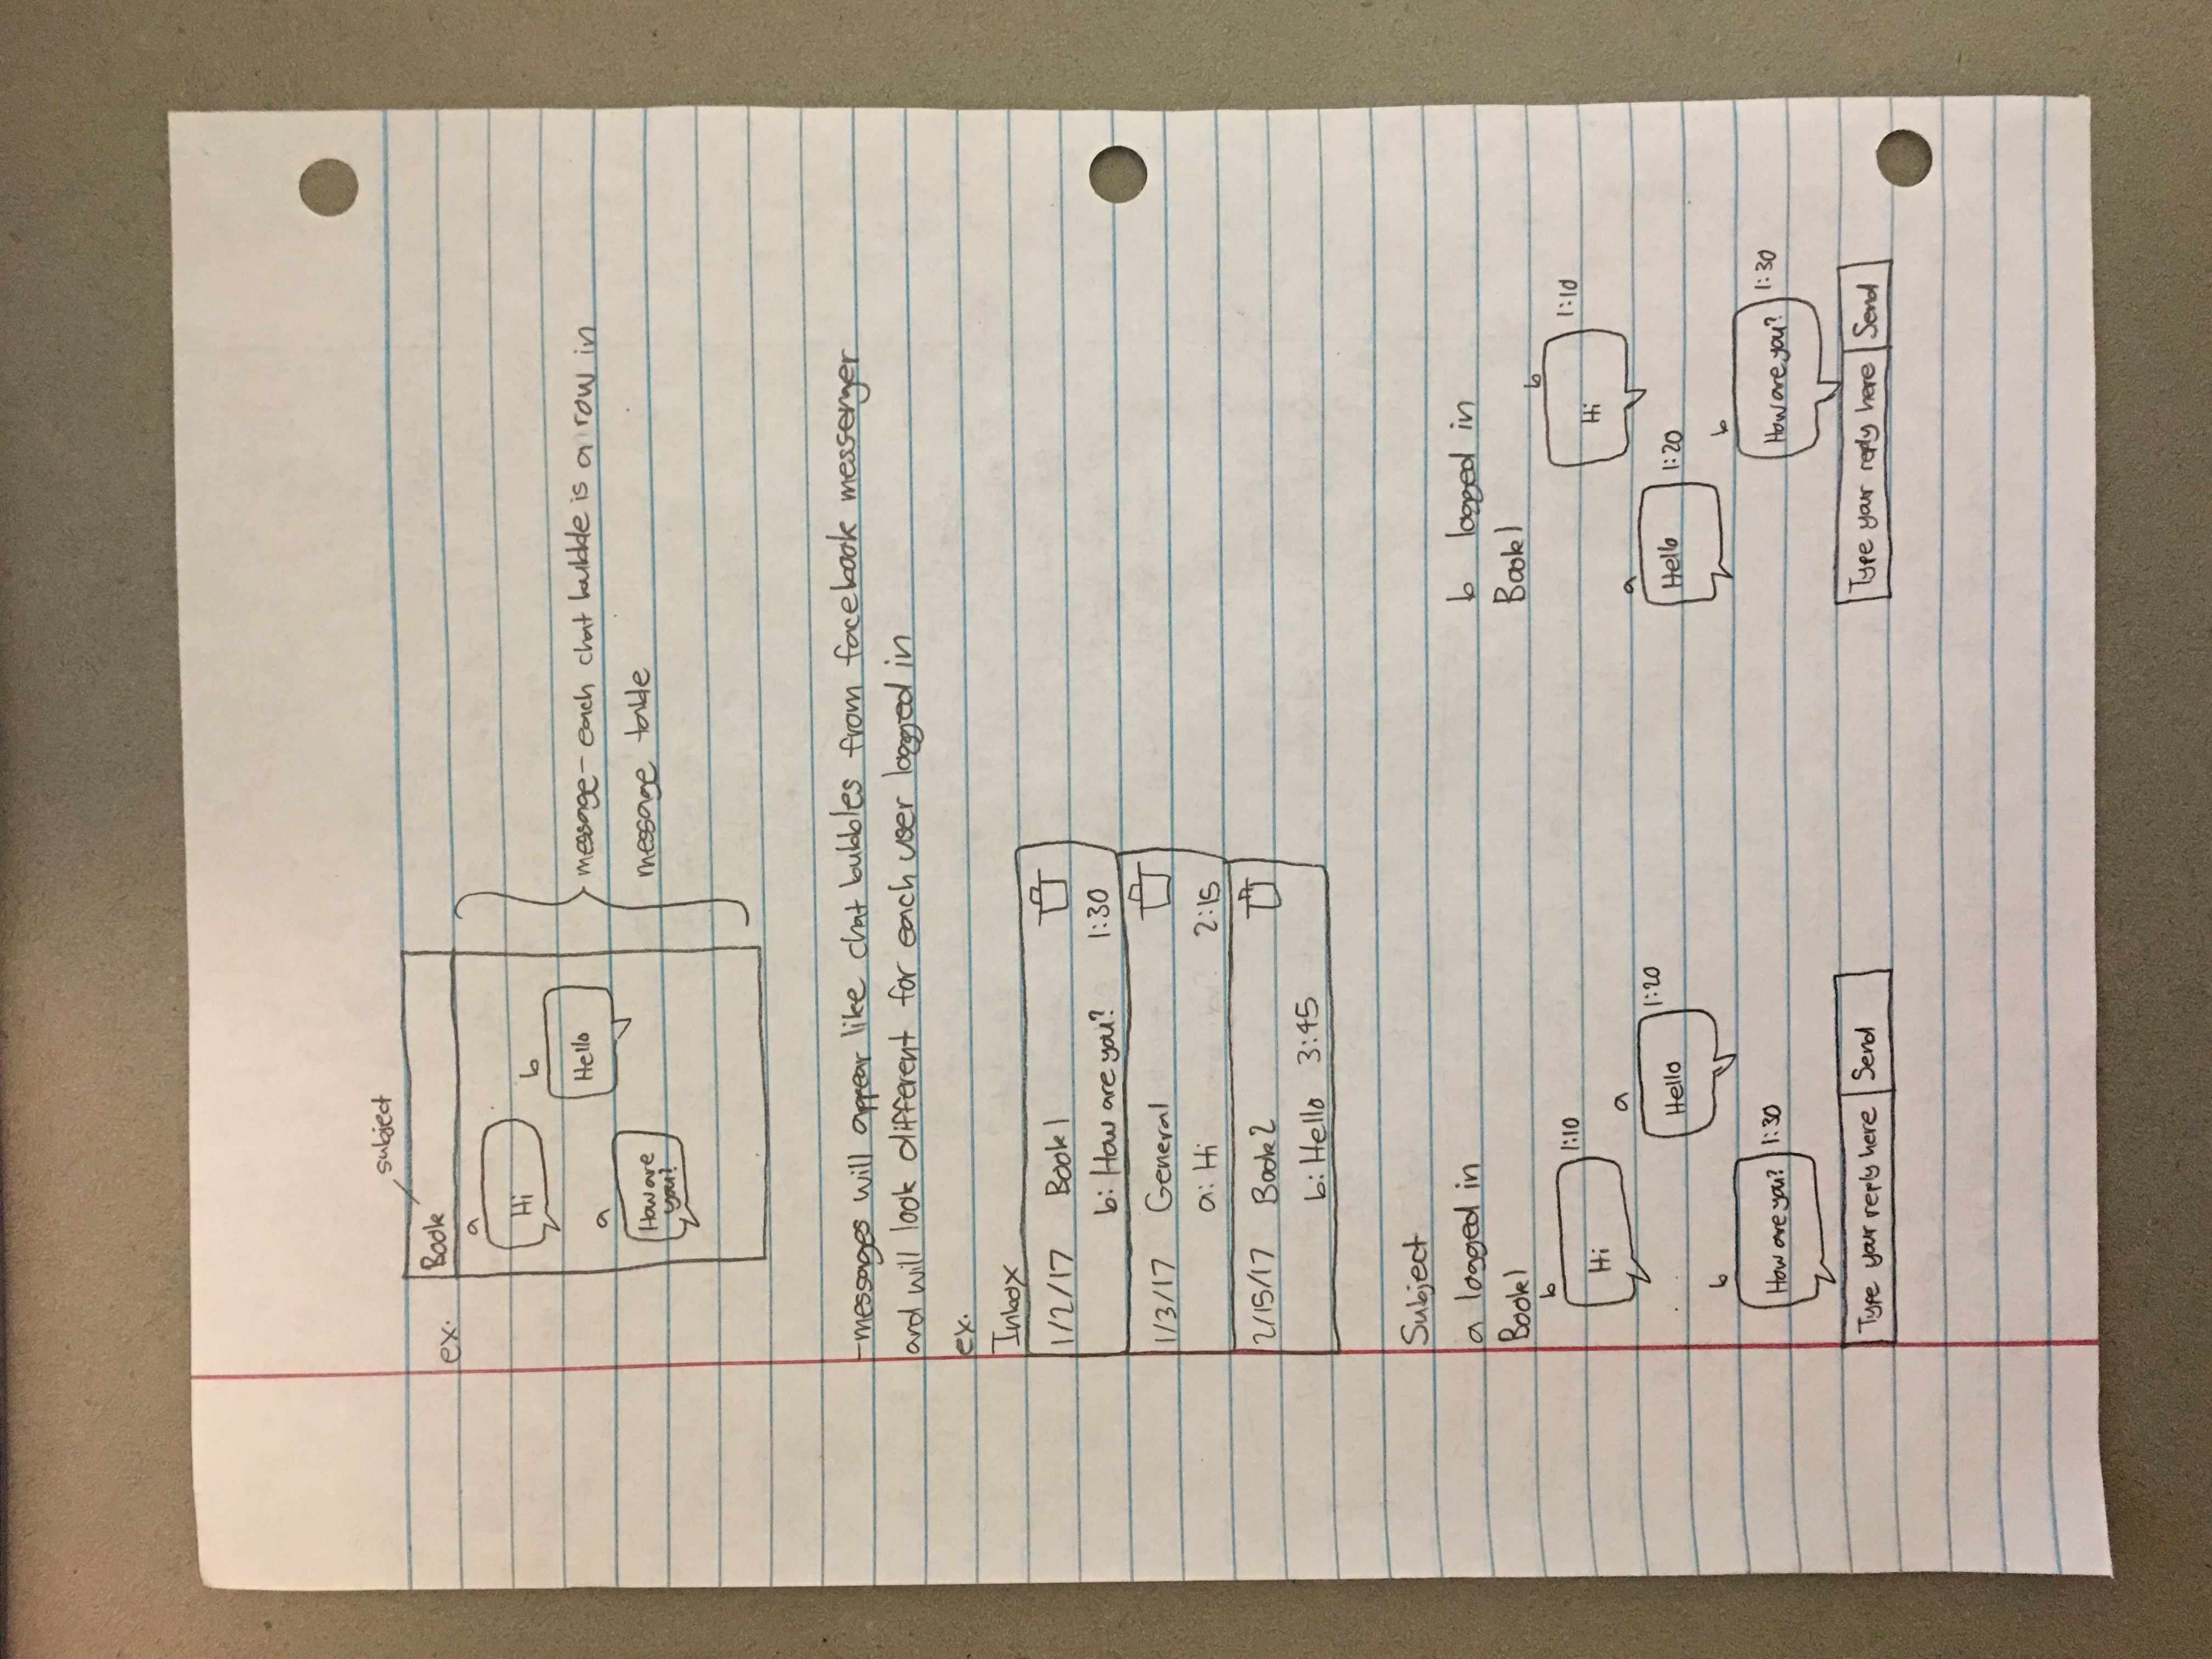 subject
ex.
Book
a
Hi
b
Hello
a
How are
you?
message - each chat bubble is a row in
message table
-messages will appear like chat bubbles from facebook messenger
and will look different for each user logged in
ex.
Inbox
1/2/17 Book1
b: How are you? 1:30
1/3/17 General
a: Hi 2:15
2/15/17 Book2
b: Hello 3:45
Subject
a logged in
Book1
b
Hi 1:10
a
Hello 1:20
b
How are you? 1:30
Type your reply here Send
b logged in
Book1
b
Hi 1:10
a
Hello 1:20
b
How are you? 1:30
Type your reply here Send